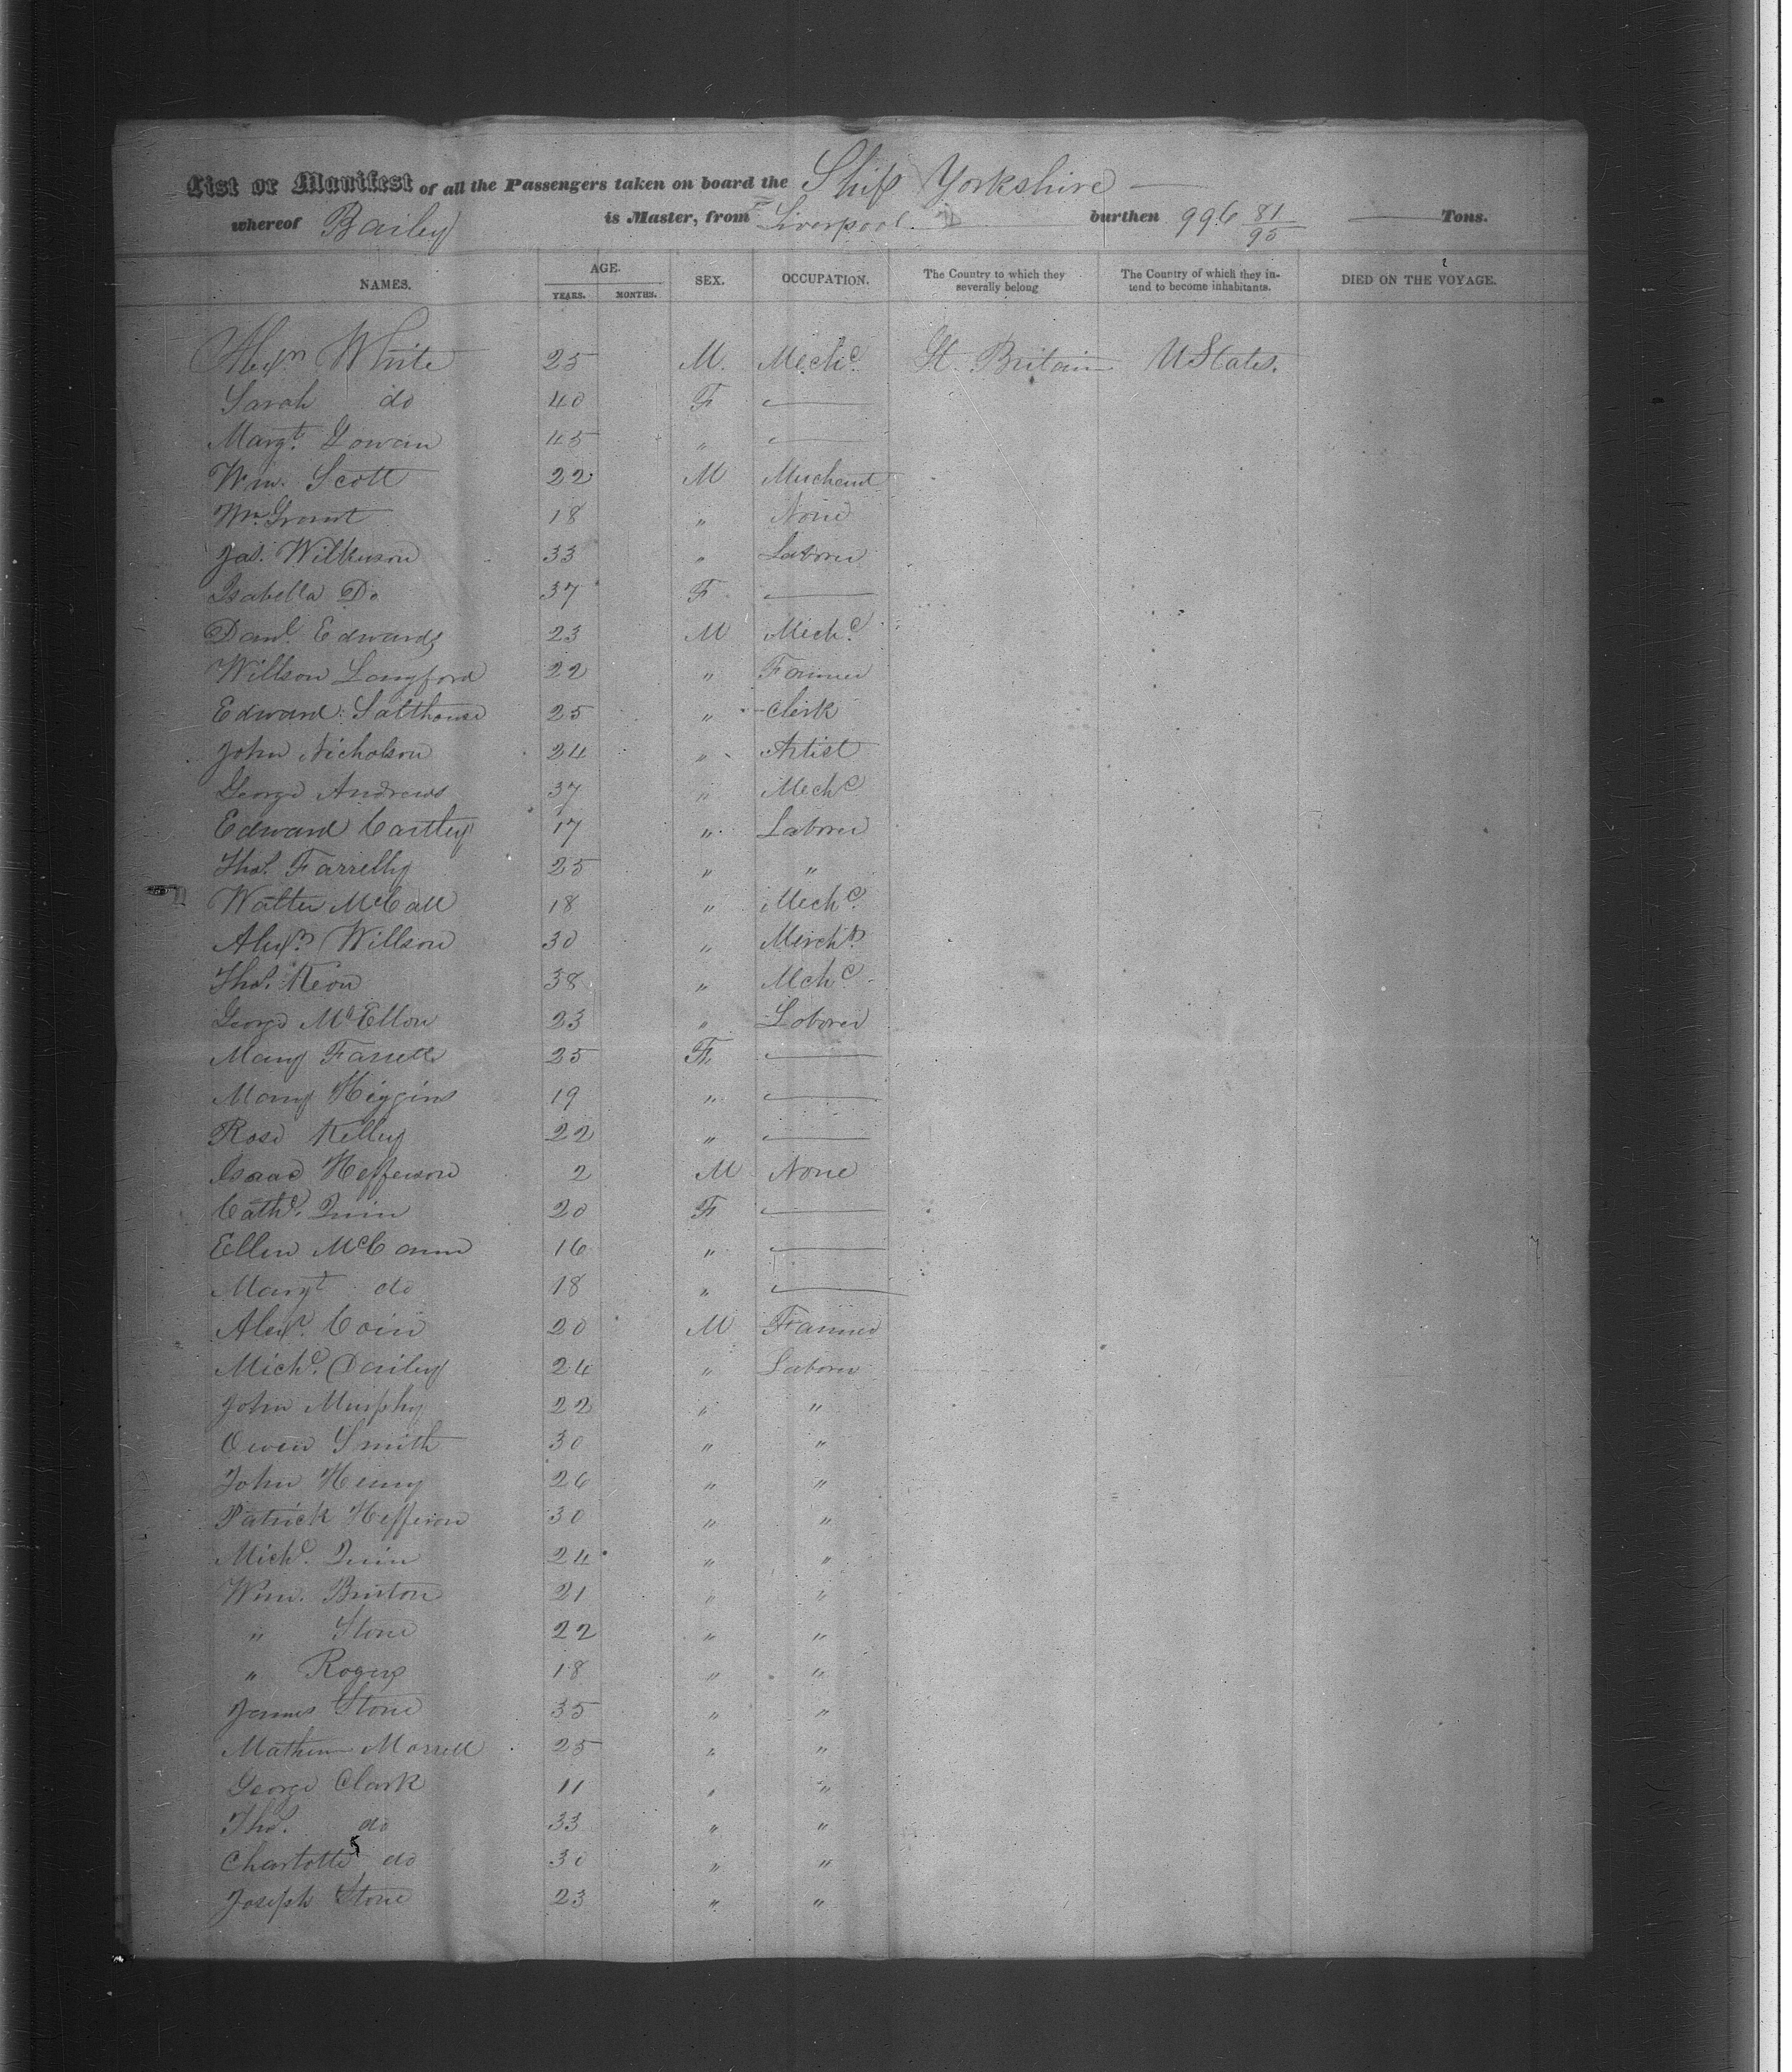 List or Manifest of all the Passengers taken on board the Ship Yorkshire
whereof Bailey is Master, from Liverpool burthen 996 81/95 Tons.
NAMES. AGE. YEARS. MONTHS. SEX. OCCUPATION. The Country to which they severally belong The Country of which they intend to become inhabitants. DIED ON THE VOYAGE.
Alexr White 25 M. Mechc. Gt. Britain U States.
Sarah do 40 F —
Margt. Gowan 45 "
Wm. Scott 22 M Merchant
Wm. Grant 18 " None
Jas. Wilkinson 33 " Laborer
Isabella Do 37 F —
Danl. Edwards 23 M Mechc.
Willson Langford 22 " Farmer
Edward Salthouse 25 " Clerk
John Nicholson 24 " Artist
George Andrews 37 " Mechc
Edward Cartley 17 " Laborer
Thos. Farrelly 25 " "
Walter McCall 18 " Mechc.
Alexr. Willson 30 " Mercht.
Thos. Keon 38 " Mchc
George McEllon 23 " Laborer
Mary Farrell 25 F —
Mary Higgins 19 " —
Rose Kelley 22 " —
Isaac Hefferon 2 M None
Cathe. Quin 20 F —
Ellen McCann 16 " —
Margt do 18 " —
Alexr. Coin 20 M Farmer
Michl. Dailey 24 " Laborer
John Murphy 22 " "
Owen Smith 30 " "
John Henry 26 " "
Patrick Hefferon 30 " "
Michl. Quin 24 " "
Wm. Burton 21 " "
" Stone 22 " "
" Rogers 18 " "
James Stone 35 " "
Mathew Morrell 25 " "
George Clark 11 " "
Thos. do 33 " "
Charlotte do 30 " "
Joseph Stone 23 " "